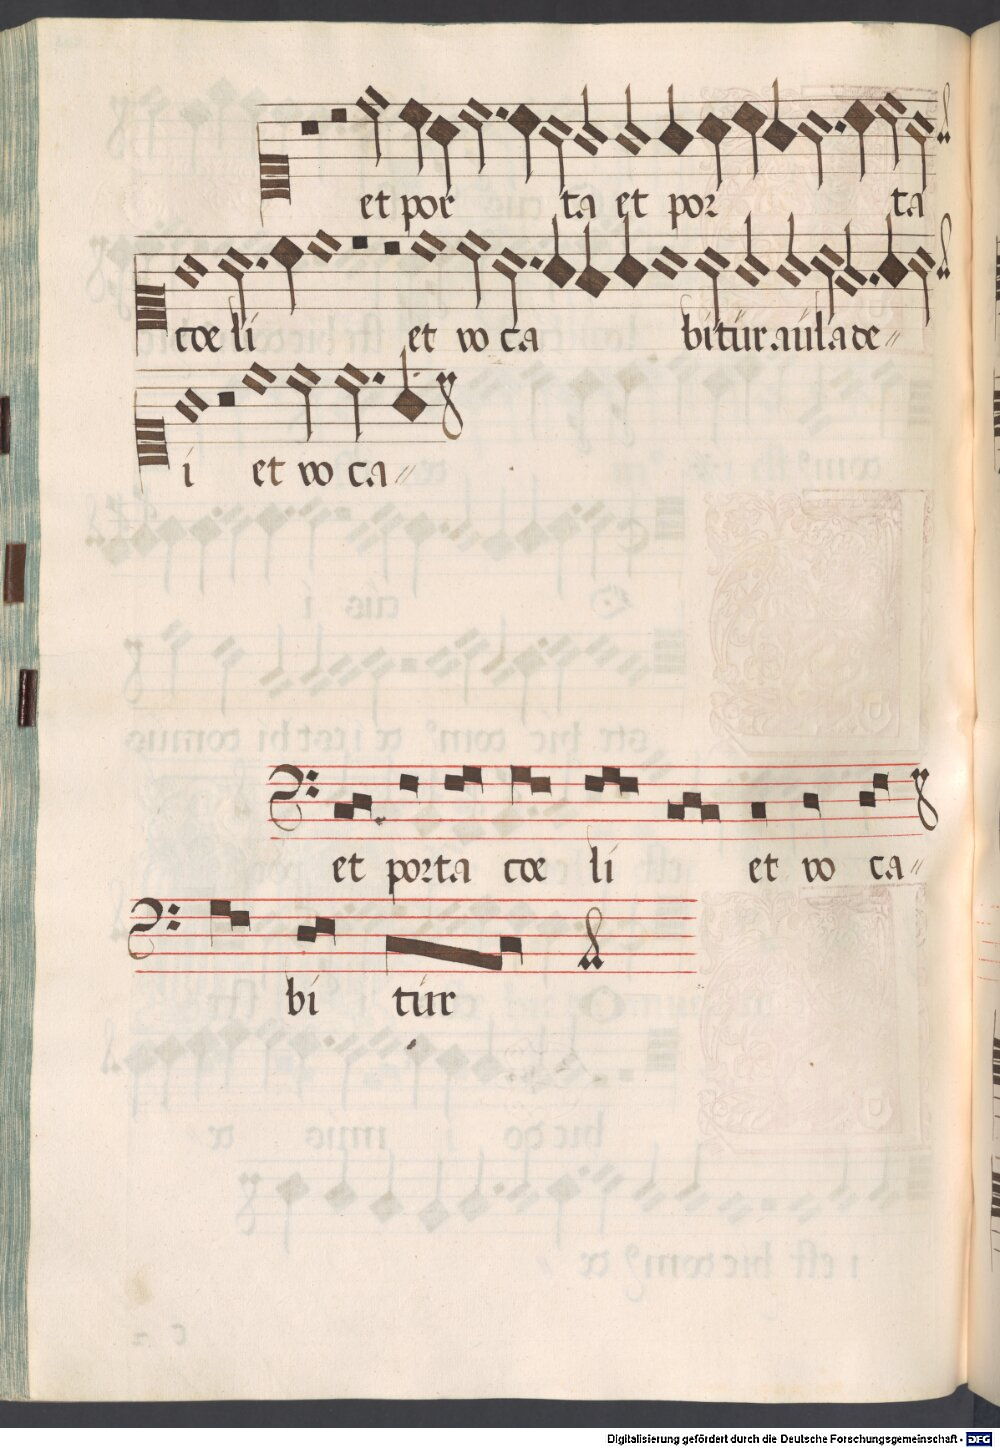 et por ta et por ta
cœ li et vo ca bitur aula de〃
i et vo ca〃
et porta cœ li et vo ca〃
bi tur
Digitalisierung gefördert durch die Deutsche Forschungsgemeinschaft - DFG